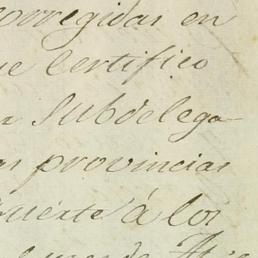 corregidas en
ue Certifico
a Subdelega-
as provincias
Puérte á los